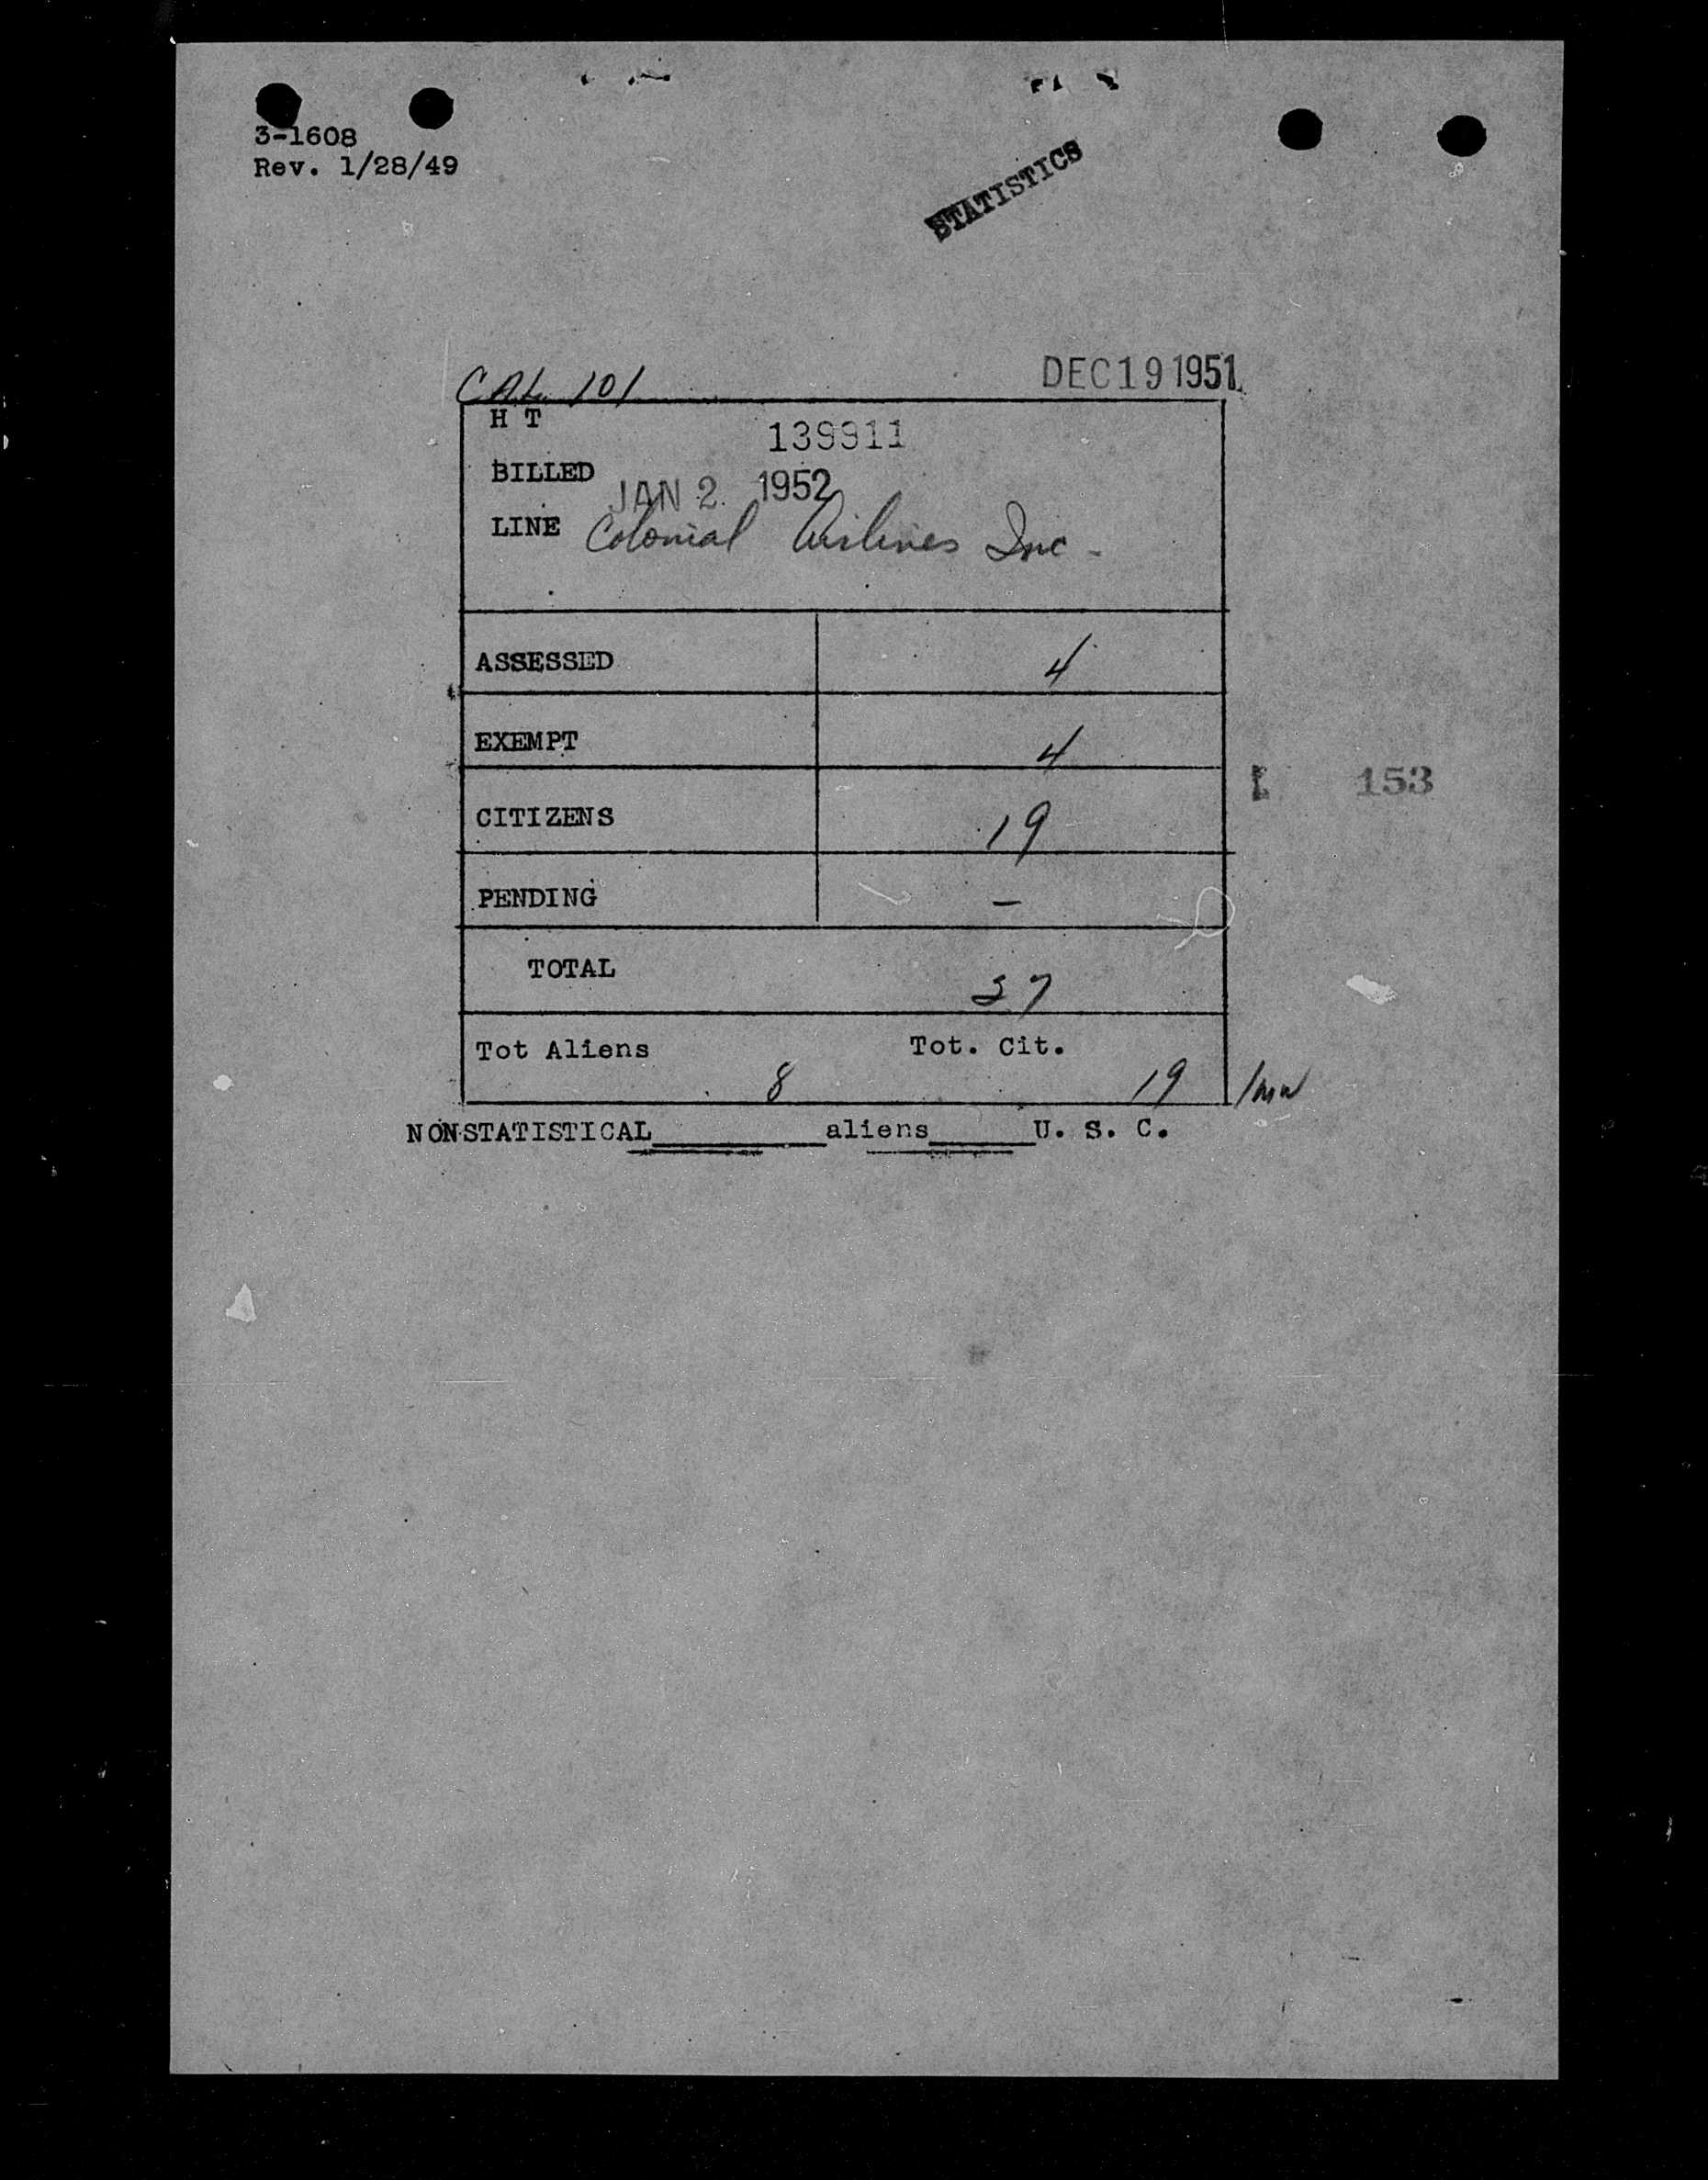 3-1608
Rev. 1/28/49
STATISTICS
CAL 101
DEC 19 1951
H T
139911
BILLED JAN 2 1952
LINE Colonial Airlines Inc -
ASSESSED 4
EXEMPT 4
CITIZENS 19
153
PENDING —
TOTAL 27
Tot Aliens Tot. Cit.
8 19
NONSTATISTICAL________aliens_____U. S. C.